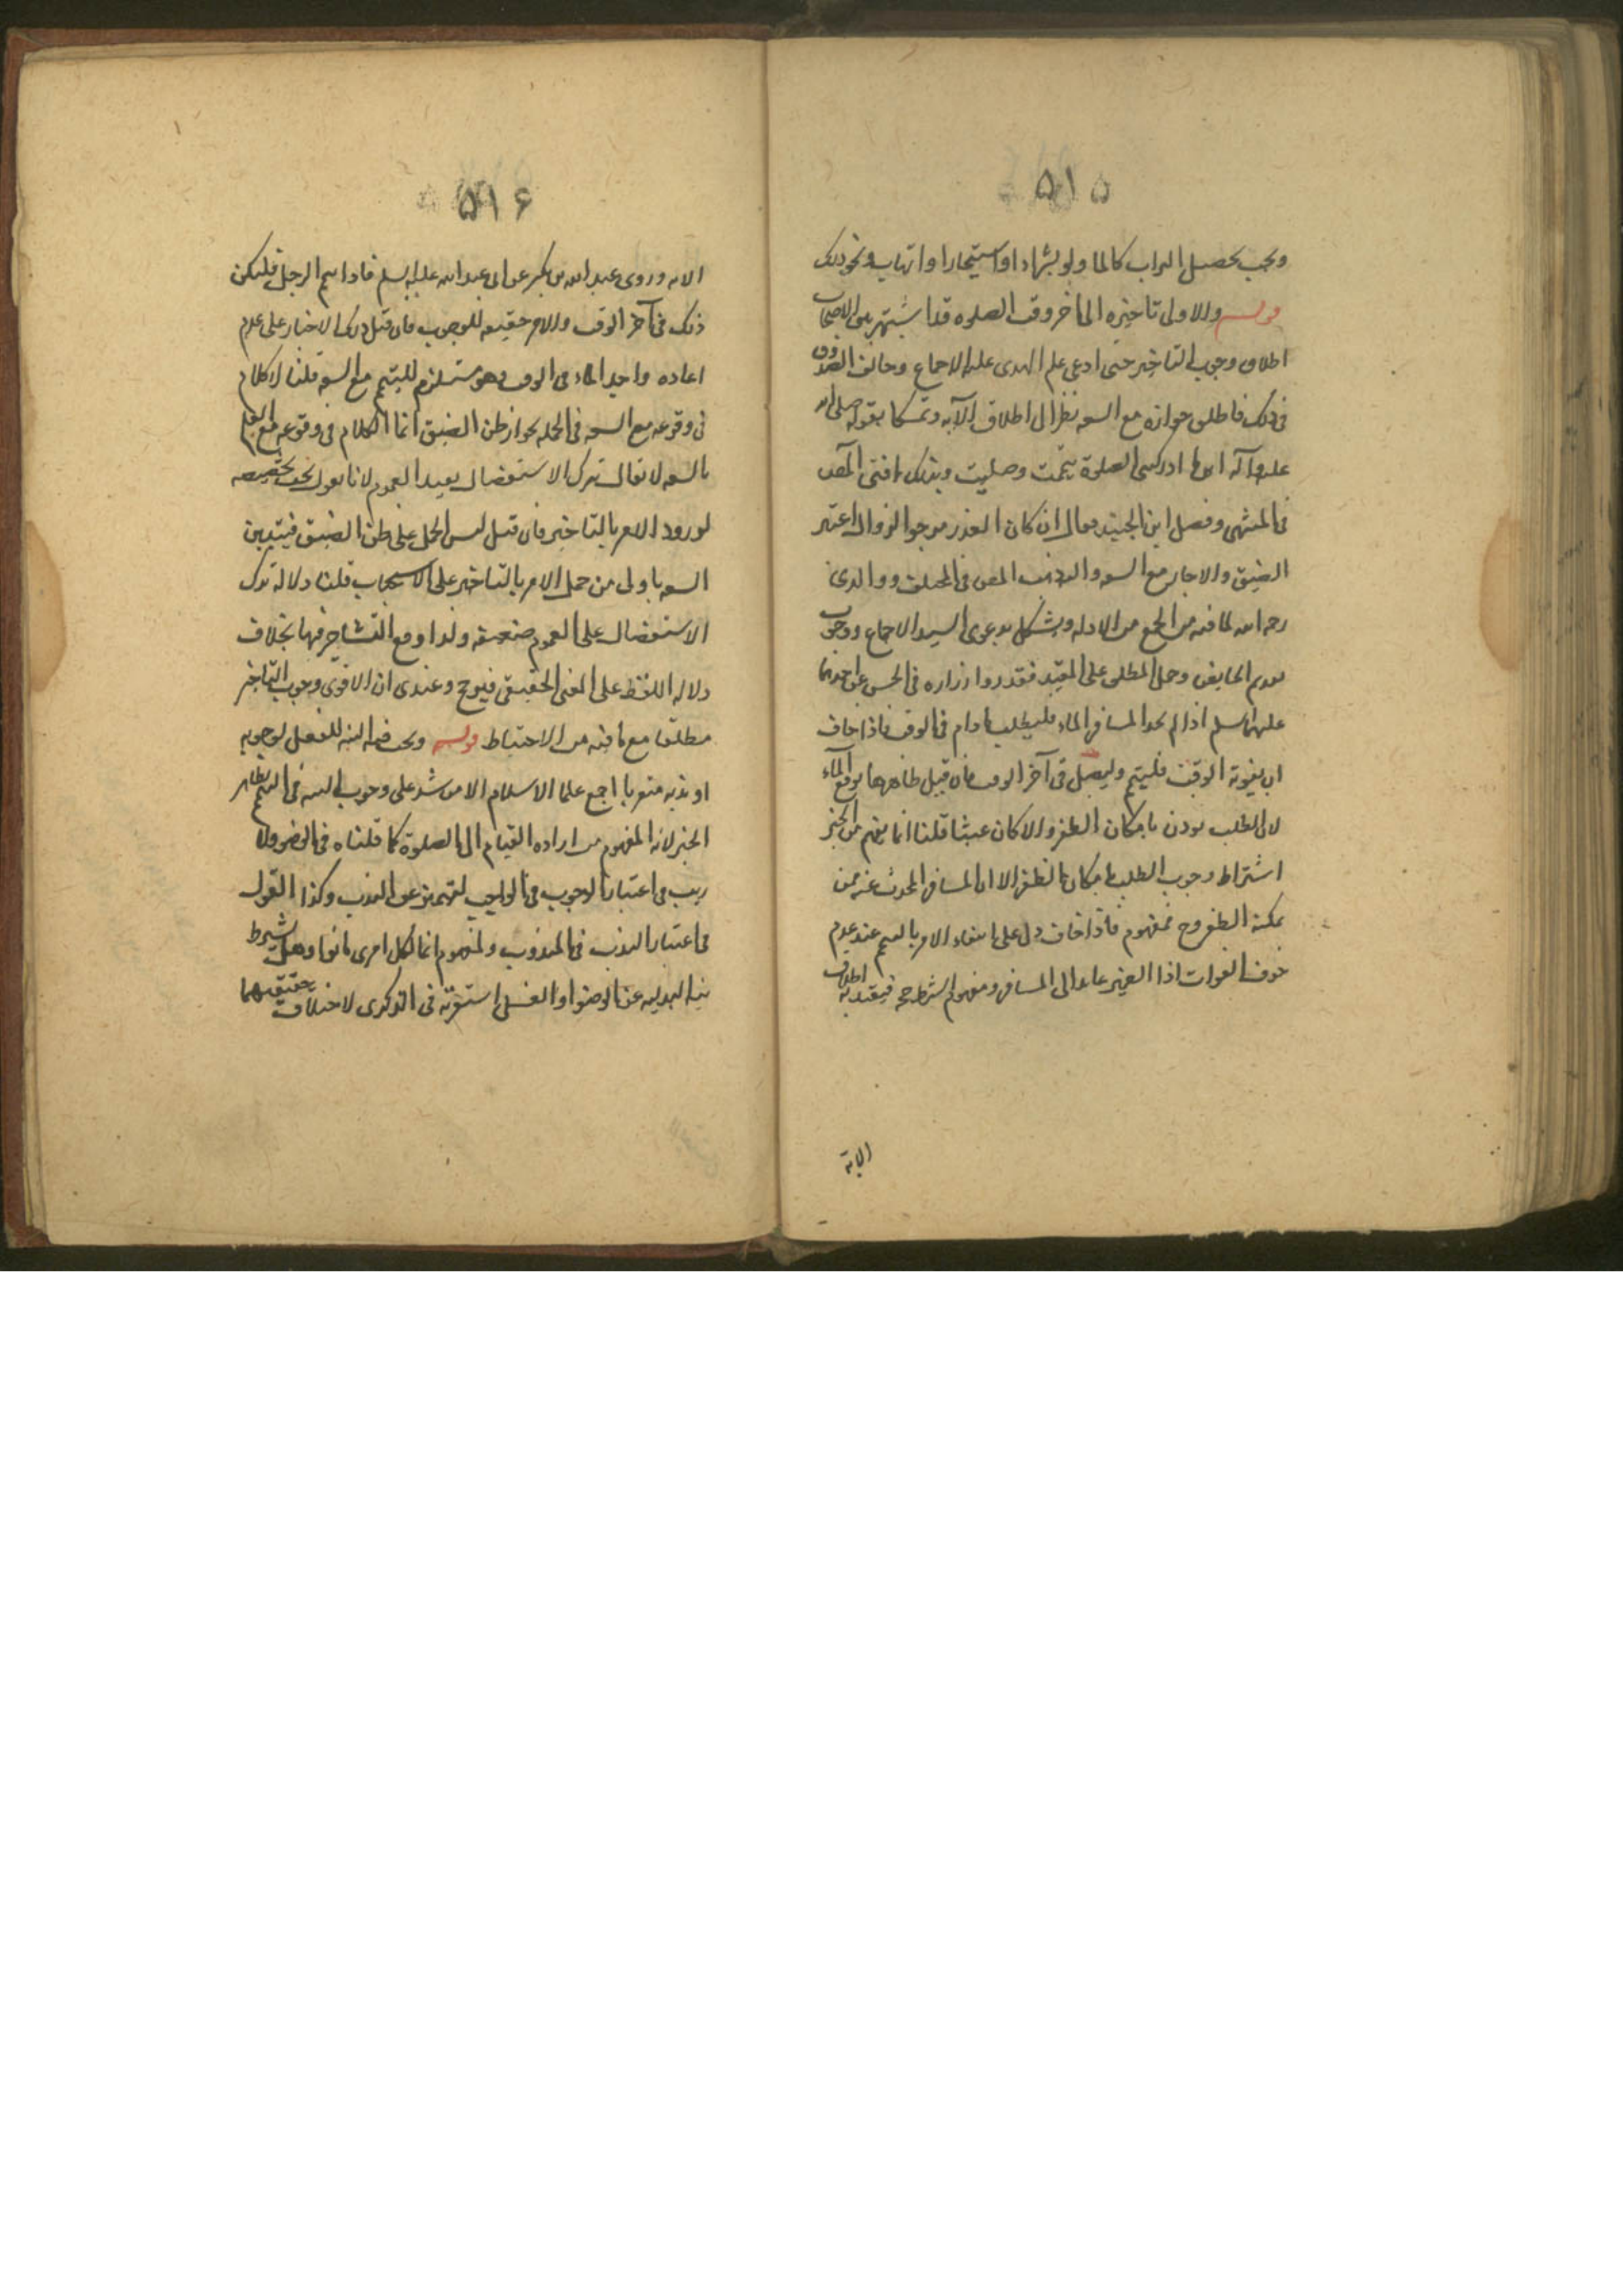 ۵۱۵
ويجب تحصيل التراب كالماء ولو بشراء او استيجار او اتهاب ونحو ذلك
قوله والاولى تاخيره الى آخر وقت الصلوه قد اشتهر بين الاصحاب
اطلاق وجوب التاخير حتى ادعى علم الهدى عليه الاجماع وخالف الصدوق
فى ذلك فاطلق جوازه مع السعه نظرا الى اطلاق الآيه وتمسكا بقوله صلى الله
عليه وآله اينما ادركتنى الصلوة تيممت وصليت وبذلك افتى المص
فى المنتهى وفصل ابن الجنيد فقال ان كان العذر مرجو الزوال اعتبر
الضيق والا جاز مع السعه واليه ذهب المص فى المختلف ووالدى
رحمه الله لما فيه من الجمع من الادله ويشكل بدعوى السيد الاجماع ووجوب
تقديم الخاص وحمل المطلق على المقيد فقد روا زراره فى الحسن عن احدهما
عليهما السلم اذا لم يجد المسافر الماء فليطلب مادام فى الوقت فاذا خاف
ان يفوته الوقت فليتيمم وليصل فى آخر الوقت فان قيل ظاهرها توقع الماء
لان الطلب يوذن بامكان الظفر والا كان عبثا قلنا انما يفهم من الخبر
اشتراط وجوب الطلب بامكان الظفر الا ان المسافر المحدث عنه ممن
يمكنه الظفر وح فمفهوم فاذا خاف دل على انتفاء الامر بالتيمم عند عدم
خوف الفوات اذا الضمير عايد الى المسافر ومفهوم الشرط حجه فيقيد به اطلاق
الاية
۵۱۶
الايه وروى عبد الله بن بكير عن ابى عبد الله عليه السلم فاذا تيمم الرجل فليكن
ذلك فى آخر الوقت والامر حقيقه للوجوب فان قيل دلت الاخبار على عدم
اعاده واجد الماء فى الوقت وهو مستلزم للتيمم مع السعه قلنا لا كلام
فى وقوعه مع السعه فى الجمله لجواز ظن الضيق انما الكلام فى وقوعه مع العلم
بالسعه لا يقال ترك الاستفصال يفيد العموم لانا نقول يجب تخصيصه
لورود الامر بالتاخير فان قيل ليس الحمل على ظن الضيق فيتبين
السعه باولى من حمل الامر بالتاخير على الاستحباب قلنا دلاله ترك
الاستفصال على العموم ضعيفه ولذا وقع التشاجر فيها بخلاف
دلاله اللفظ على المعنى الحقيقى فيرجح وعندى ان الاقوى وجوب التاخير
مطلقا مع ما فيه من الاحتياط قوله ويجب فيه النيه للفعل لوجوبه
او ندبه متقربا اجمع علماء الاسلام الا من شذ على وجوب النيه فى التيمم لظاهر
الخبر لانه المفهوم من اراده القيام الى الصلوة كما قلناه فى الوضوء ولا
ريب فى اعتبار الوجوب فى الواجب لتميزه عن الندب وكذا القول
فى اعتبار الندب فى المندوب ولمفهوم انما لكل امرئ ما نوا وهل يشترط
نيه البدليه عن الوضوا والغسل استقربه فى الذكرى لاختلاف حقيقتهما